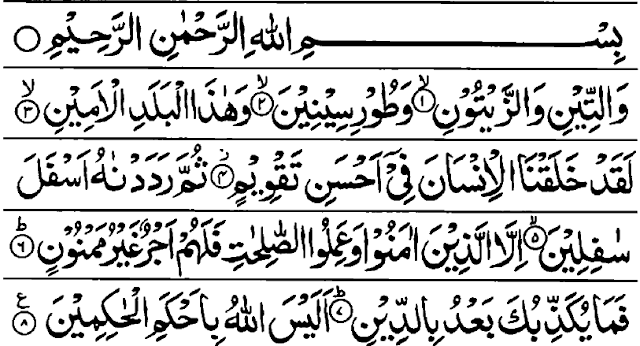 بِسْـــــــــــمِ اللّٰهِ الرَّحْمٰنِ الرَّحِيْمِ ۝
وَالتِّيْنِ وَالزَّيْتُوْنِ ۙ﴿۱﴾ وَطُوْرِ سِيْنِيْنَ ۙ﴿۲﴾ وَهٰذَا الْبَلَدِ الْاَمِيْنِ ۙ﴿۳﴾
لَقَدْ خَلَقْنَا الْاِنْسَانَ فِيْۤ اَحْسَنِ تَقْوِيْمٍ ۚ﴿۴﴾ ثُمَّ رَدَدْنٰهُ اَسْفَلَ
سٰفِلِيْنَ ۙ﴿۵﴾ اِلَّا الَّذِيْنَ اٰمَنُوْا وَعَمِلُوا الصّٰلِحٰتِ فَلَهُمْ اَجْرٌ غَيْرُ مَمْنُوْنٍ ؕ﴿۶﴾
فَمَا يُكَذِّبُكَ بَعْدُ بِالدِّيْنِ ؕ﴿۷﴾ اَلَيْسَ اللّٰهُ بِاَحْكَمِ الْحٰكِمِيْنَ ﴿۸﴾ ع